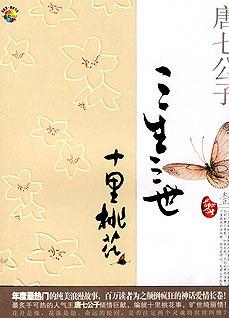 唐七公子
三生三世
十里桃花
年度最热门的纯美浪漫故事，百万读者为之倾倒疯狂的神话爱情长卷！
最炙手可热的人气王唐七公子倾情巨献，编就十里桃花事，旷世绮丽情！